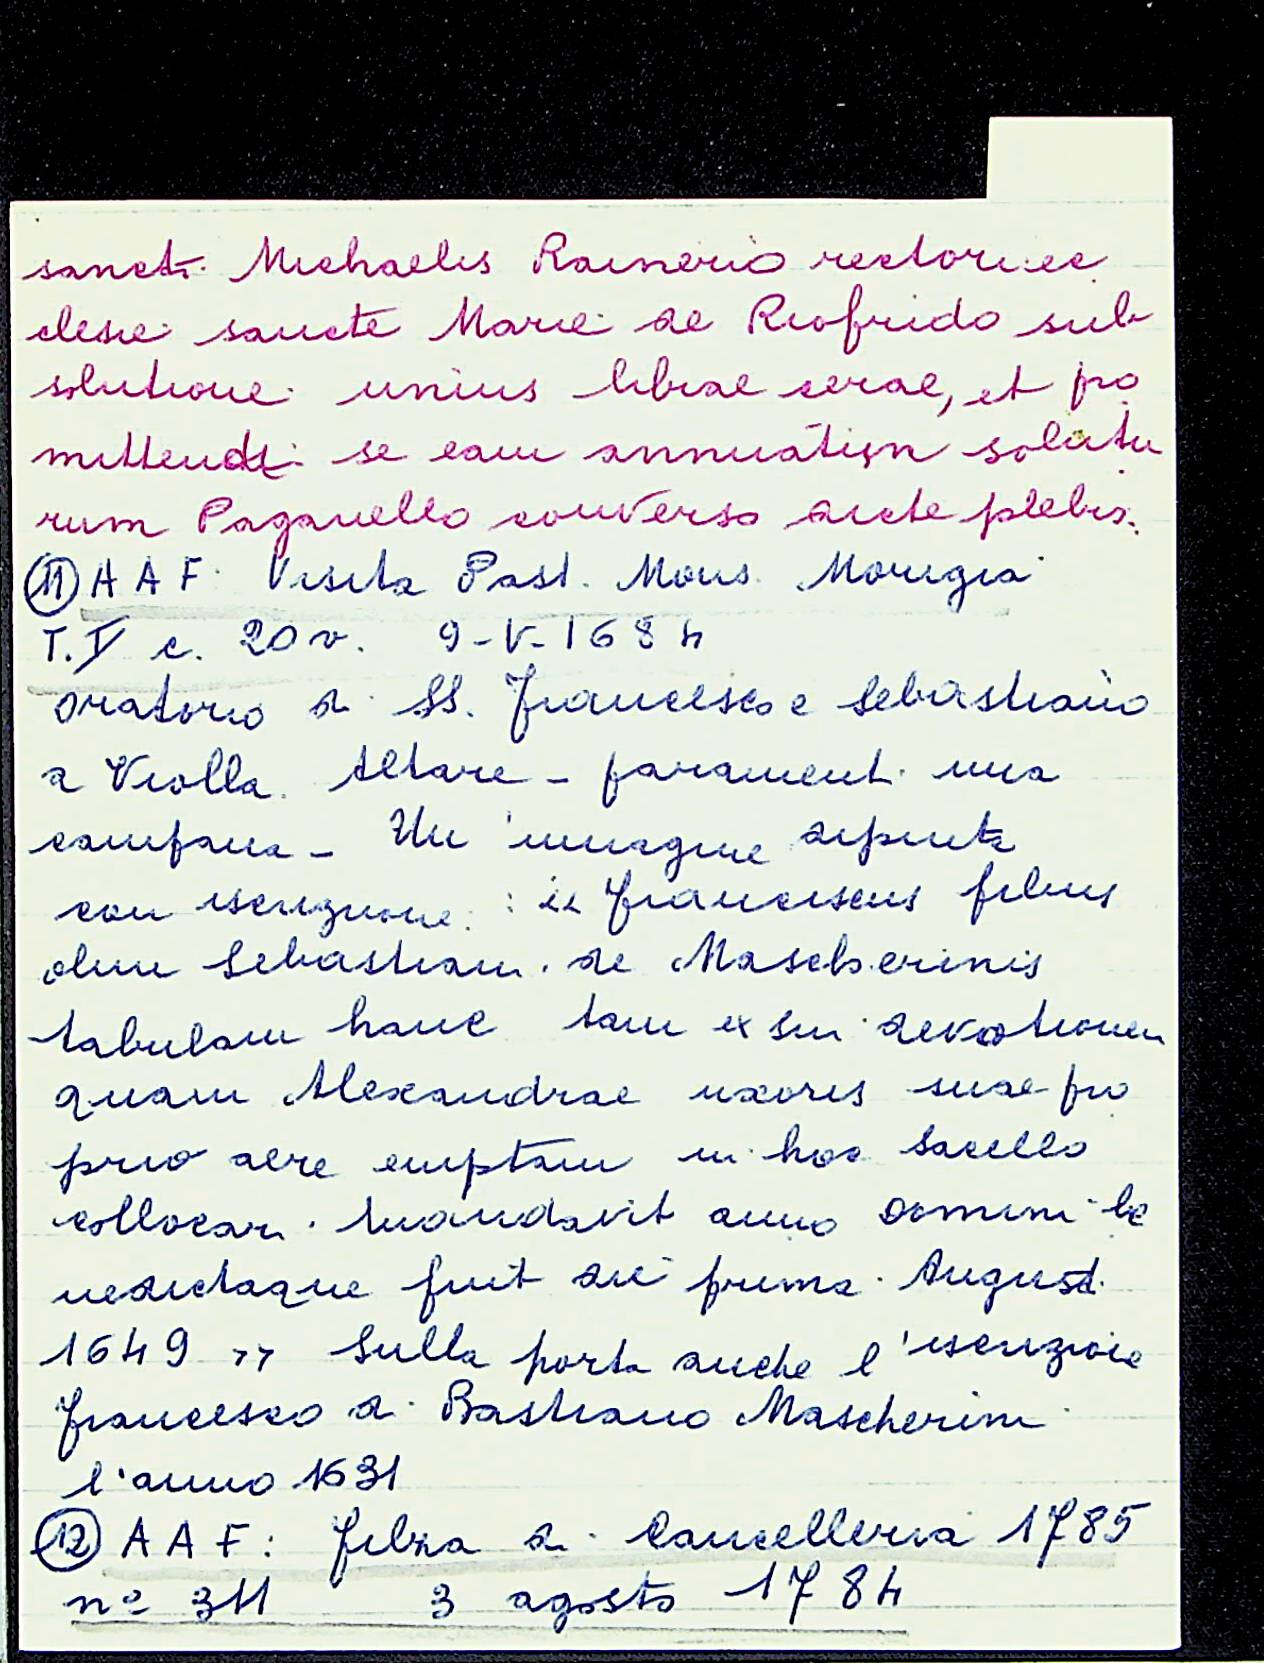 sancti Michaelis Rainerio rectori ec
clesie sancte Marie de Riofrido sub
solutione unius librae cerae, et pro
mittendi se eam annuatim solutu
rum Paganello converso dicte plebis.
11 A A F: Visita Past. Mons. Morigia
T. V c. 20 v. 9-V-1684
oratorio di SS. Francesco e Sebastiano
a Violla. Altare - paramenti una
campana - Un'immagine dipinta
con iscrizione: « Franciscus filius
olim Sebastiani de Mascherinis
tabulam hanc tam ex sui devotionem
quam Alexandrae uxoris suae pro
prio aere emptam in hoc sacello
collocari mandavit anno domini be
nedictaque fuit die prima Augusti
1649 » Sulla porta anche l'iscrizione
Francesco di Bastiano Mascherini
l'anno 1631
12 A A F: Filza di Cancelleria 1785
n° 311 3 agosto 1784